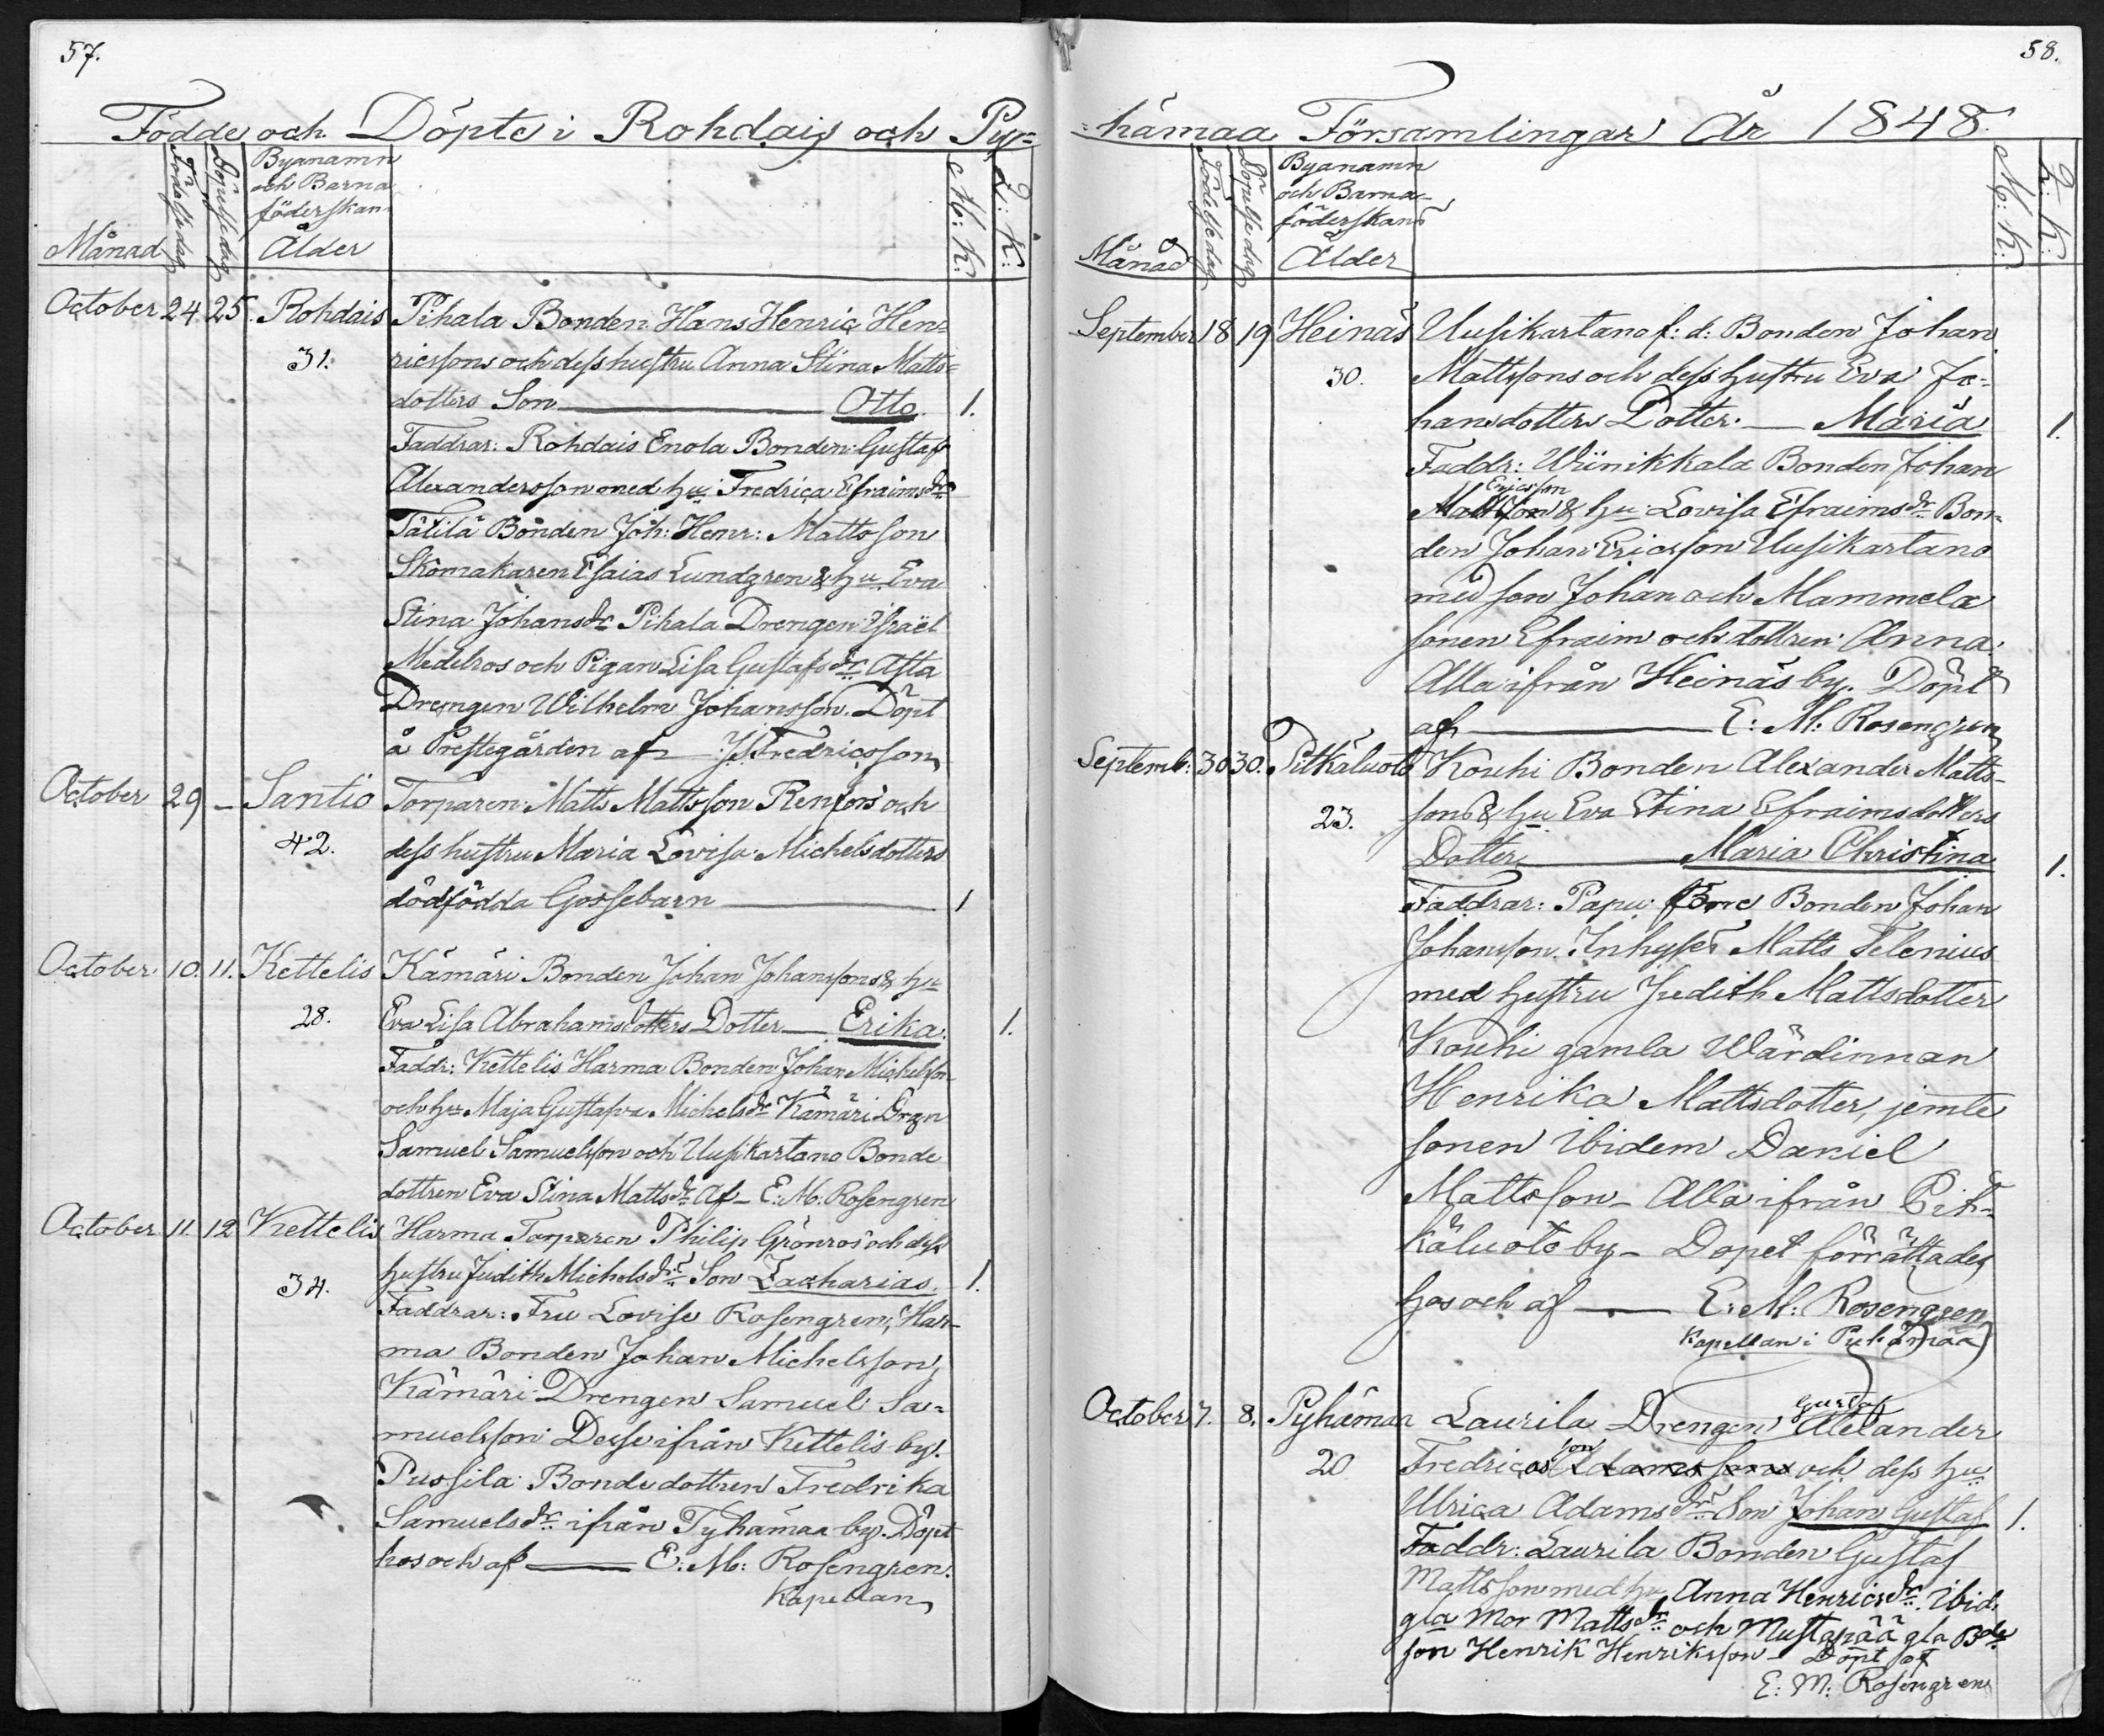 57.
Födde och Döpte i Rohdais och Py=
Månad
Födelse dag
Döpelse dag
Byanamn
och Barna
föderskans
Ålder
M: K:
Q: K:
October 24 25. Rohdais Pihala Bonden Hans Henric Hen=
31. ricssons och dess hustru Anna Stina Matts=
dotters Son — Otto. 1.
Faddrar: Rohdais Enola Bonden Gustaf
Alexandersson med hu: Fredrica Efraimsdr
Tätilä Bonden Joh: Henr: Mattsson
Skomakaren Esaias Lundgren & hu Eva
Stina Johansdr Pihala Drengen Israël
Medelros och Pigan Lisa Gustafsdr Asta
Drengen Wilhelm Johansson. Döpt
å Prestegården af — Fredricsson
October 29 — Santio Torparen Matts Mattsson Renfors och
42. dess hustru Maria Lovisa Michelsdotters
dödfödda Gossebarn — 1
October. 10. 11. Kettelis Kämäri Bonden Johan Johanssons & hu
28. Eva Lisa Abrahamsdotters Dotter — Erika. 1.
Faddr: Kettelis Harma Bonden Johan Michelsson
och hu Maja Gustafva Michelsdr Kämäri Drgn
Samuel Samuelsson och Uusikartano Bonde
dottren Eva Stina Mattsdr Af — E: M: Rosengren
October. 11. 12 Kettelis Harma Torparen Philip Grönros och dess
34. hustru Judith Michelsdrs Son Zacharias. 1.
Faddrar: Fru Lovise Rosengren, Har-
ma Bonden Johan Michelsson,
Kämäri Drengen Samuel Sa=
muelsson Desse ifrån Kettelis by.
Pussila Bonde dottren Fredrika
Samuelsdr ifrån Pyhämaa by. Döpt
hos och af — E: M: Rosengren.
Kapellan
58.
=hämaa Församlingar År 1848.
Månad
Födelse dag
Döpelse dag
Byanamn
och Barna-
föderskans
Ålder
M: K:
Q: K:
September 18 19 Heinäs Uusikartano f: d: Bonden Johan
30. Mattssons och dess hustru Eva Jo-
hansdotters Dotter. — Maria 1.
Faddr: Wiinikkala Bonden Johan
Ericsson
Mattsson & hu Lovisa Efraimsdr Bon-
den Johan Ericsson Uusikartano
med son Johan och Mammela
sonen Efraim och dottren Anna.
Alla ifrån Heinäs by. Döpt
af — E: M: Rosengren
Septemb: 30 30. Pitkäluoto Kouhi Bonden Alexander Matts-
23. sons & hu Eva Stina Efraimsdotters
Dotter — Maria Christina 1.
Faddrar: Papu Bonden Johan
Johansson. Inhyses Matts Selenius
med hustru Judith Mattsdotter
Kouhi gamla Wärdinnan
Henrika Mattsdotter, jemte
sonen ibidem Daniel
Mattsson — Alla ifrån Pit-
käluoto by — Dopet förrättades
hos och af — E: M: Rosengren
Kapellan i Pyhämaa
October 7. 8. Pyhämaa Laurila Drengen Alexander
Gustaf
20 Fredrics Adamssons och dess hu
son
Ulrica Adamsdrs Son Johan Gustaf 1.
Faddr: Laurila Bonden Gustaf
Mattsson med hu Anna Henricsdr. Ibid:
gla Mor Mattsdr och Mustapää gla Bde
son Henrik Henriksson — Döpt af
E: M: Rosengren